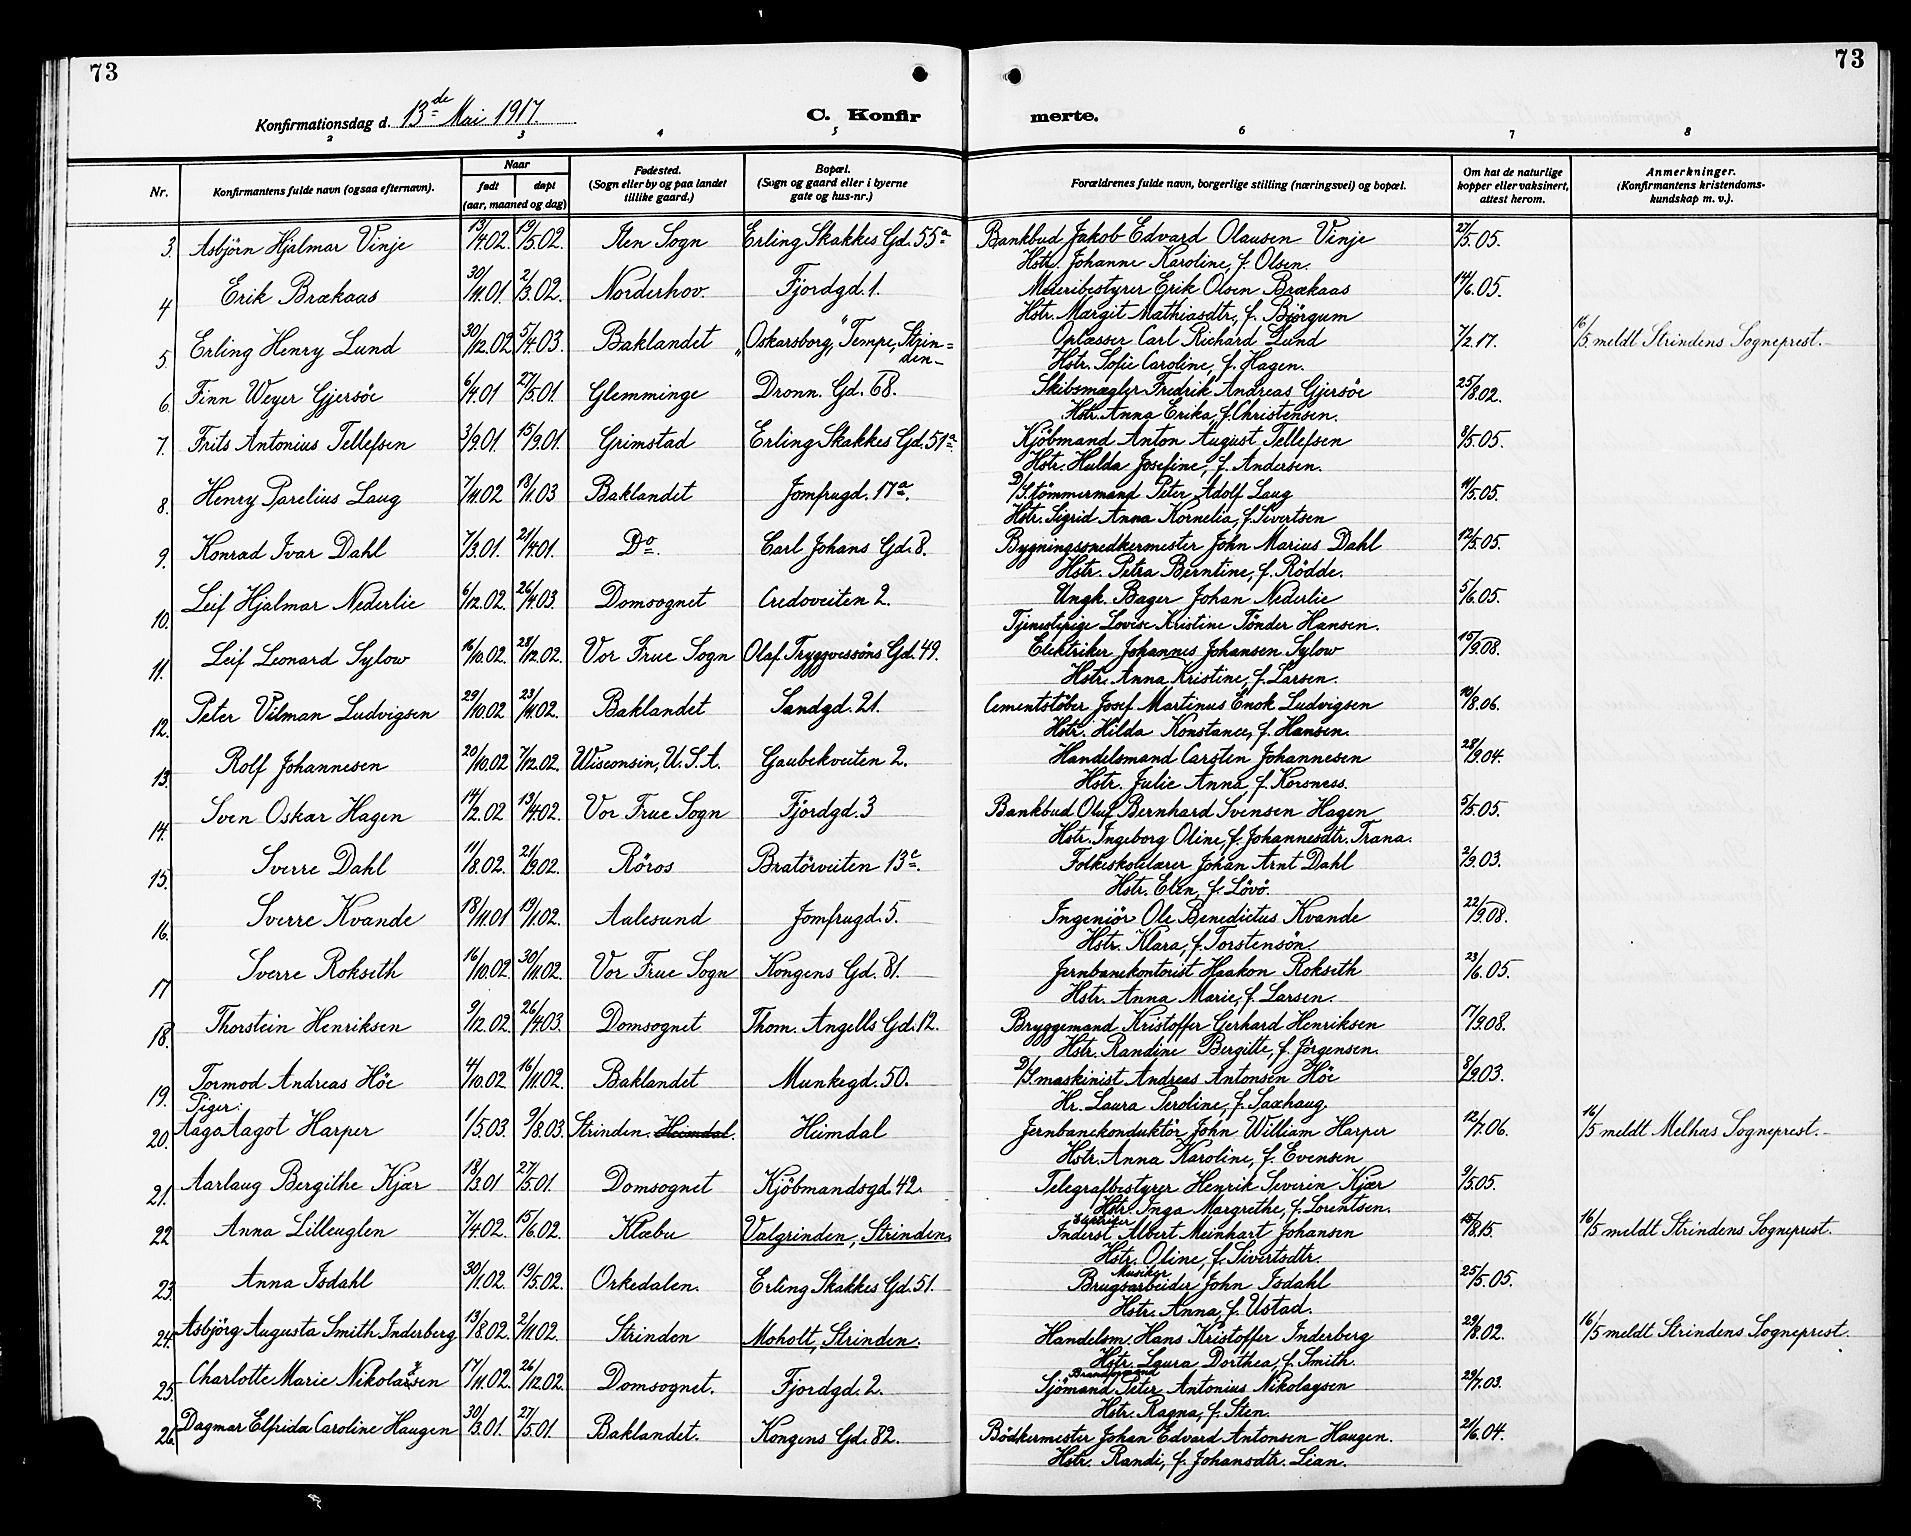 73
73
Konfirmationsdag d. 13de Mai 1917.
C. Konfir
merte.
2 3 4 5 6 7 8
Nr. Konfirmantens fulde navn (ogsaa efternavn). Naar født døpt (aar, maaned og dag) Fødested. (Sogn eller by og paa landet tillike gaard.) Bopæl. (Sogn og gaard eller i byerne gate og hus-nr.) Forældrenes fulde navn, borgerlige stilling (næringsvei) og bopæl. Om hat de naturlige kopper eller vaksinert, attest herom. Anmerkninger. (Konfirmantens kristendoms-kundskap m. v.).
3. Asbjörn Hjalmar Vinje 13/4.02. 19/5.02. Ilen Sogn Erling Skakkes Gd. 55a Bankbud Jakob Edvard Olausen Vinje 27/5.05.
Hstr. Johanne Karoline, f. Olsen.
4 Erik Brækaas 30/11.01. 2/3.02. Norderhov. Fjordgd. 1. Meieribestyrer Erik Olsen Brækaas 14/6.05.
Hstr. Margit Mathiasdtr., f. Björgum
5. Erling Henry Lund 30/12.02 5/4.03. Baklandet "Oskarsborg," Tempe, Strin=den- Oplæsser Carl Richard Lund 7/2.17. 16/5 meldt Strindens Sogneprest.
Hstr. Sofie Caroline, f. Hagen.
6. Finn Weyer Gjersöe 6/4.01 27/5.01. Glemminge Dronn. Gd. 68. Skibsmægler Fredrik Andreas Gjersöe 25/8.02.
Hstr. Anna Erika, f. Christensen.
7. Frits Antonius Tellefsen 3/9.01 15/9.01. Grimstad Erling Skakkes Gd. 51a Kjöbmand Anton August Tellefsen 8/5.05.
Hstr. Hulda Josefine, f. Andersen.
8. Henry Parelius Laug 7/11.02 18/1.03 Baklandet Jomfrugd. 17a. D/S. tömmermand Peter Adolf Laug 11/5.05.
Hstr. Sigrid Anna Kornelia, f. Sivertsen
9. Konrad Ivar Dahl 7/3.01. 21/4.01. Do. Carl Johans Gd. 8. Bygningssnedkermester John Marius Dahl 12/5.05.
Hstr. Petra Berntine, f. Rödde.
10. Leif Hjalmar Nederlie 6/12.02. 26/4.03. Domsognet Credoveiten 2. Ungk. Bager Johan Nederlie 5/6.05.
Tjenestepige Lovise Kristine Tönder Hansen.
11. Leif Leonard Sylow 16/10.02. 28/12.02. Vor Frue Sogn Olaf Tryggvessöns Gd. 49. Elektriker Johannes Johansen Sylow 15/9.08.
Hstr. Anna Kristine, f. Larsen.
12. Peter Vilman Ludvigsen 29/10.02 23/11.02. Baklandet Sandgd. 21. Cementstöber Josef Martinus Enok Ludvigsen 10/8.06.
Hstr. Hilda Konstance, f. Hansen.
13. Rolf Johannesen 20/10.02 7/12.02. Wisconsin, U.S.A. Gaubekveiten 2. Handelsmand Carsten Johannesen 28/9.04.
Hstr. Julie Anna, f. Korsness.
14. Sven Oskar Hagen 14/2.02 13/4.02. Vor Frue Sogn Fjordgd. 3 Bankbud Oluf Bernhard Svensen Hagen 5/5.05.
Hstr. Ingeborg Oline, f. Johannesdtr. Trana.
15. Sverre Dahl 11/8.02. 21/9.02. Röros Bratörveiten 13c. Folkeskolelærer Johan Arnt Dahl 2/9.03.
Hstr. Elen, f. Lövö.
16. Sverre Kvande 18/11.01 19/1.02. Aalesund Jomfrugd. 5. Ingeniör Ole Benedictus Kvande 22/9.08.
Hstr. Klara, f. Torstensön.
17 Sverre Rokseth 16/10.02. 30/11.02. Vor Frue Sogn Kongens Gd. 81. Jernbanekontorist Haakon Rokseth 23/6.05.
Hstr. Anna Marie, f. Larsen.
18. Thorstein Henriksen 9/12.02. 26/4.03. Domsognet Thom. Angells Gd. 12. Bryggemand Kristoffer Gerhard Henriksen 17/9.08.
Hstr. Randine Bergitte, f. Jörgensen.
19. Tormod Andreas Höe 4/10.02 16/11.02. Baklandet Munkegd. 50. D/S. maskinist Andreas Antonsen Höe 8/9.03.
Hr. Laura Peroline, f. Saxhaug.
Piger:
20. Aaga Aagot Harper 1/5.03. 9/8.03. Strinden. Heimdal. Heimdal Jernbanekonduktör John William Harper 12/7.06. 16/5 meldt Melhus Sogneprest.
Hstr. Anna Karoline, f. Evensen
21. Aarlaug Bergithe Kjær 18/3.01 27/5.01. Domsognet Kjöbmandsgd. 42. Telegrafbestyrer Henrik Severin Kjær 9/5.05.
Hstr. Inga Margrethe, f. Lorentsen.
22. Anna Lilleuglen 7/4.02. 15/6.02. Klæbu Valgrinden, Strinden. Inderst Albert Meinhart Johansen 15/8.15. 16/5 meldt Strindens Sogneprest.
Hstr. Oline, f. Sivertsdtr.
23. Anna Isdahl 30/1.02. 19/5.02. Orkedalen. Erling Skakkes Gd. 51. Musiker Brugsarbeider John Isdahl 25/5.05.
Hstr. Anna, f. Ustad.
24. Asbjörg Augusta Smith Inderberg 13/8.02. 2/11.02. Strinden Moholt, Strinden. Handelsm. Hans Kristoffer Inderberg 29/8.02. 16/5 meldt Strindens Sogneprest.
Hstr. Laura Dorthea, f. Smith.
25. Charlotte Marie Nikolaysen 17/11.02. 26/12.02. Domsognet. Fjordgd. 2. Sjömand Peter Antonius Nikolaysen 29/7.03.
Hstr. Ragna, f. Sten.
26. Dagmar Elfrida Caroline Haugen 30/3.01. 27/5.01. Baklandet. Kongens Gd. 82. Bödkermester Johan Edvard Antonsen Haugen. 21/6.04.
Hstr. Randi, f. Johansdtr. Lian.